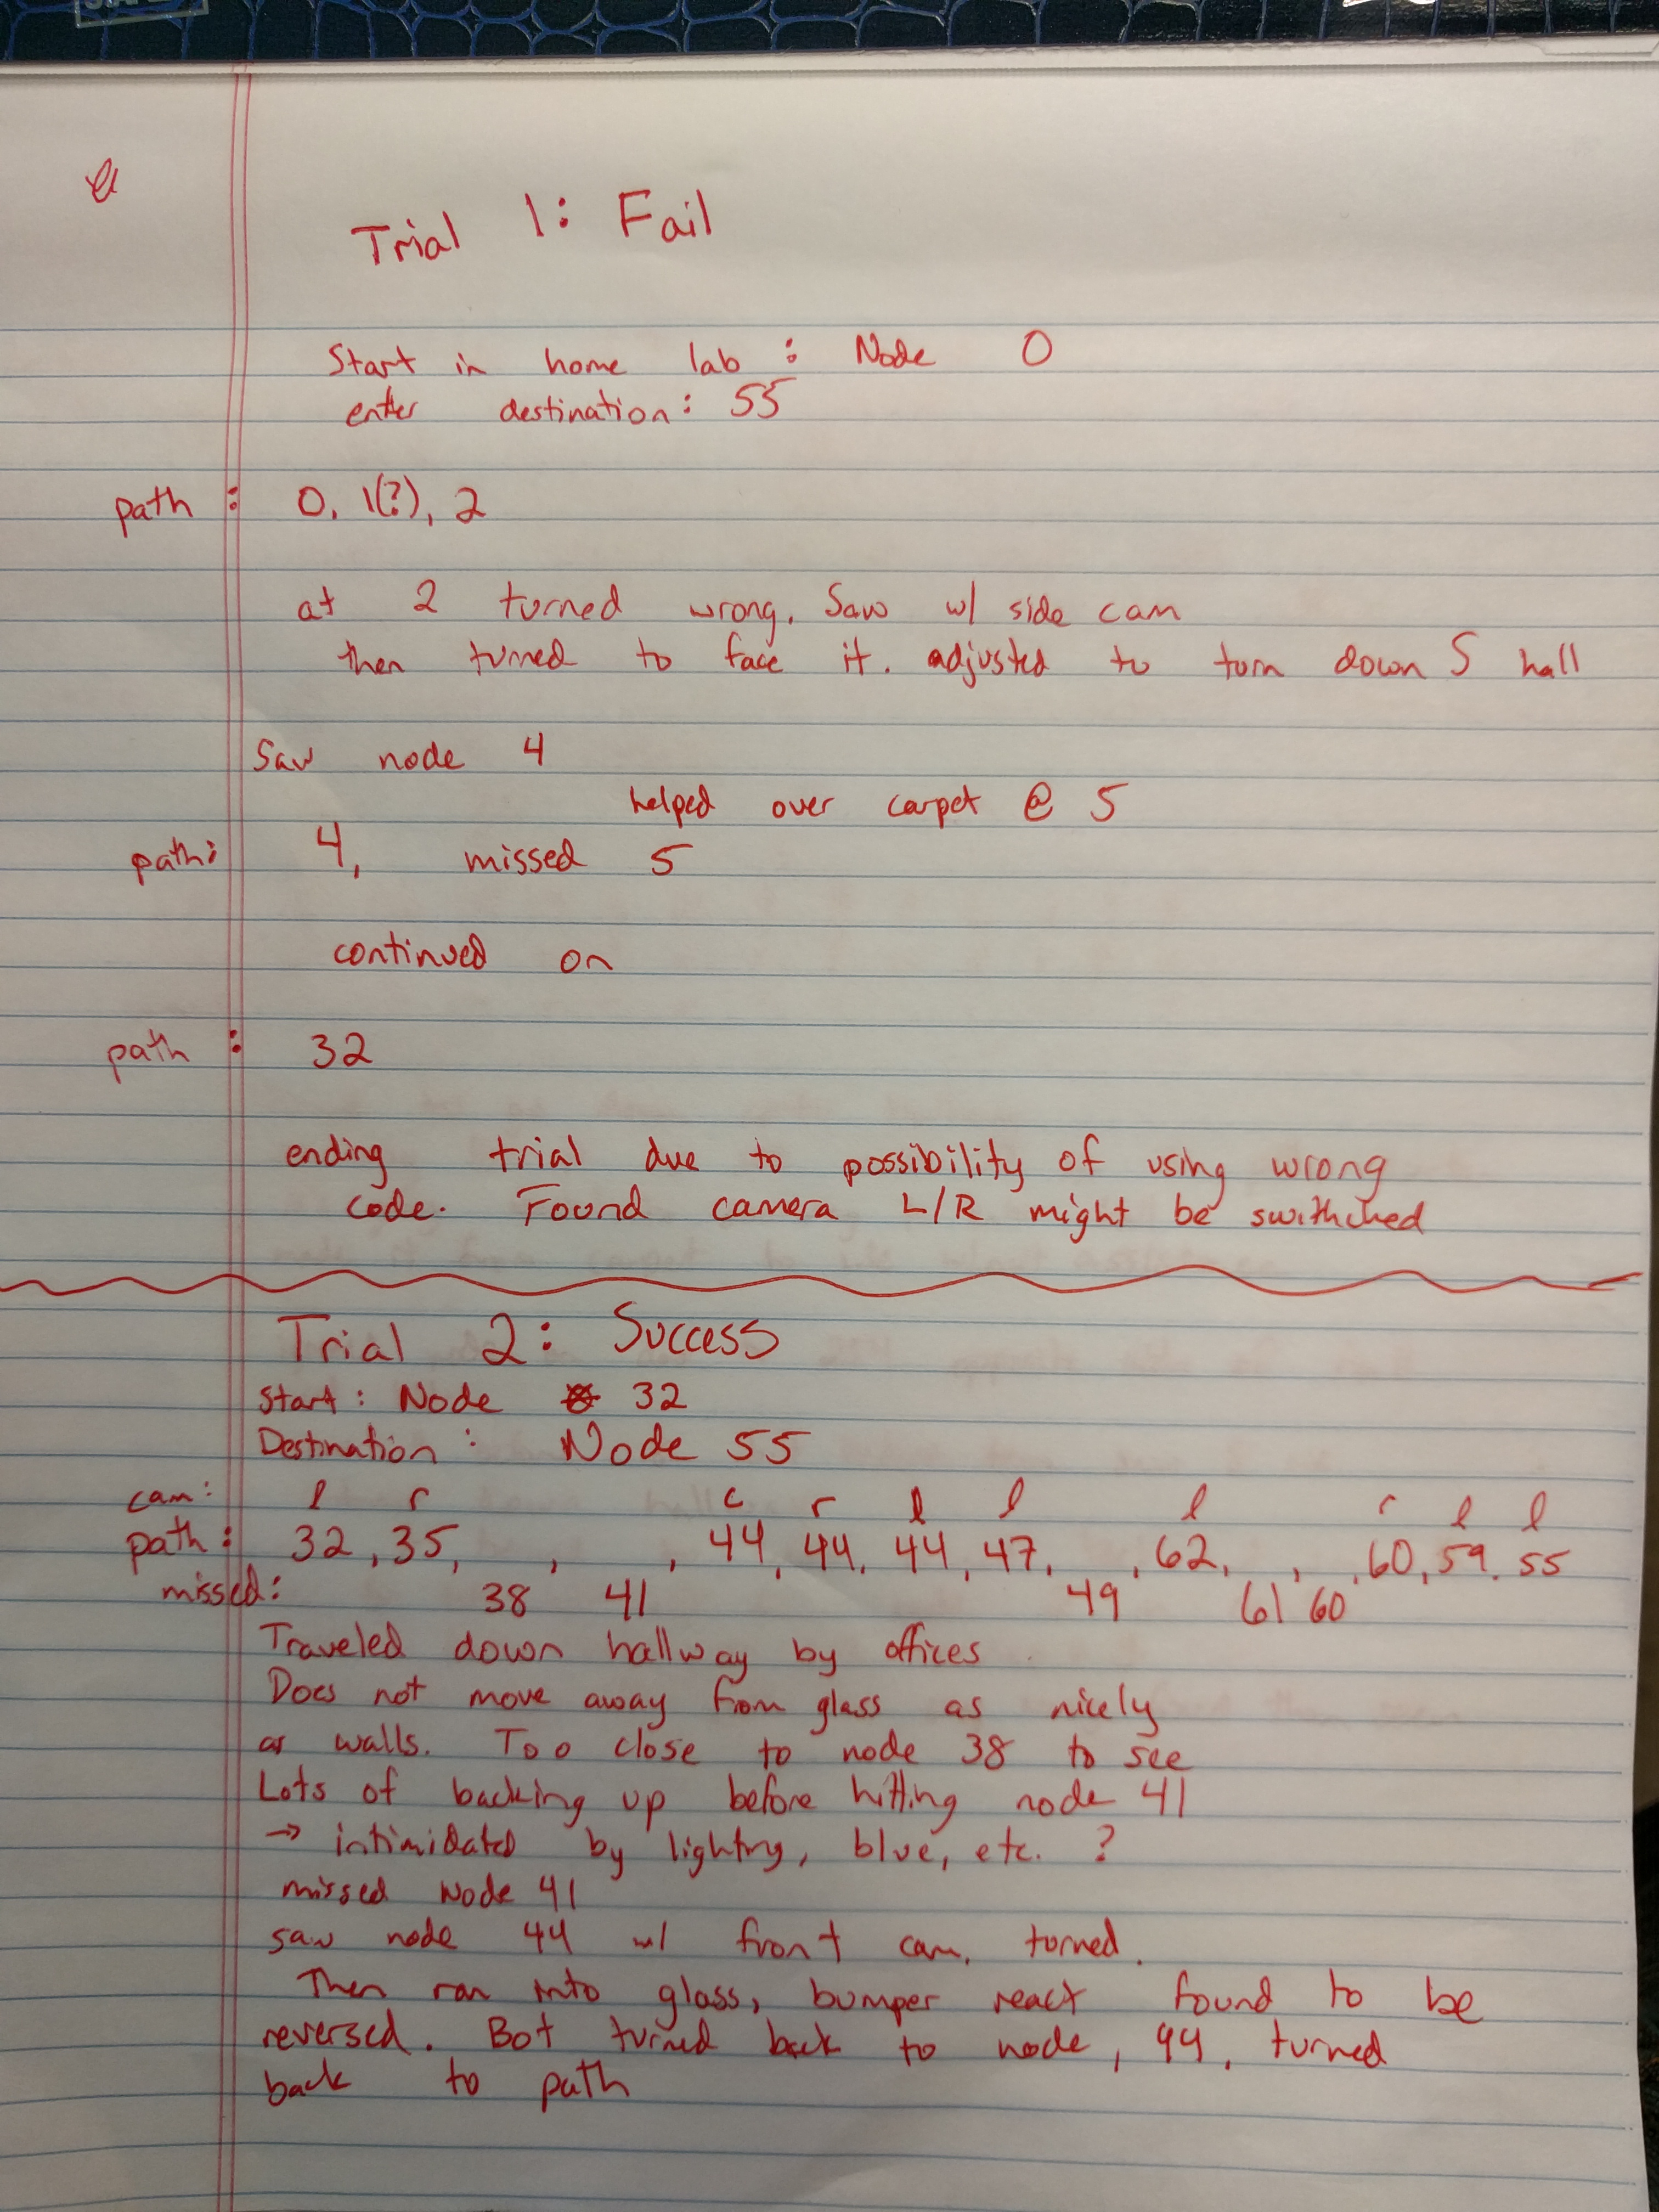 Trial 1: Fail
Start in home lab : Node 0
enter destination: 55
path : 0, 1(?), 2
at 2 turned wrong. Saw w/ side cam
then turned to face it. adjusted to turn down S hall
Saw node 4
helped over carpet @ 5
path: 4, missed 5
continued on
path : 32
ending trial due to possibility of using wrong
code. Found camera L/R might be swithched
Trial 2: Success
Start: Node 32
Destination: Node 55
cam: l r c r l l l r l l
path: 32, 35, , , 44, 44, 44, 47, , 62, , , 60, 59, 55
missed: 38 41 49 61 60
Traveled down hallway by offices
Does not move away from glass as nicely
as walls. Too close to node 38 to see
Lots of backing up before hitting node 41
→ intimidated by lighting, blue, etc. ?
missed Node 41
saw node 44 w/ front cam, turned.
Then ran into glass, bumper react found to be
reversed. Bot turned back to node, 44, turned
back to path